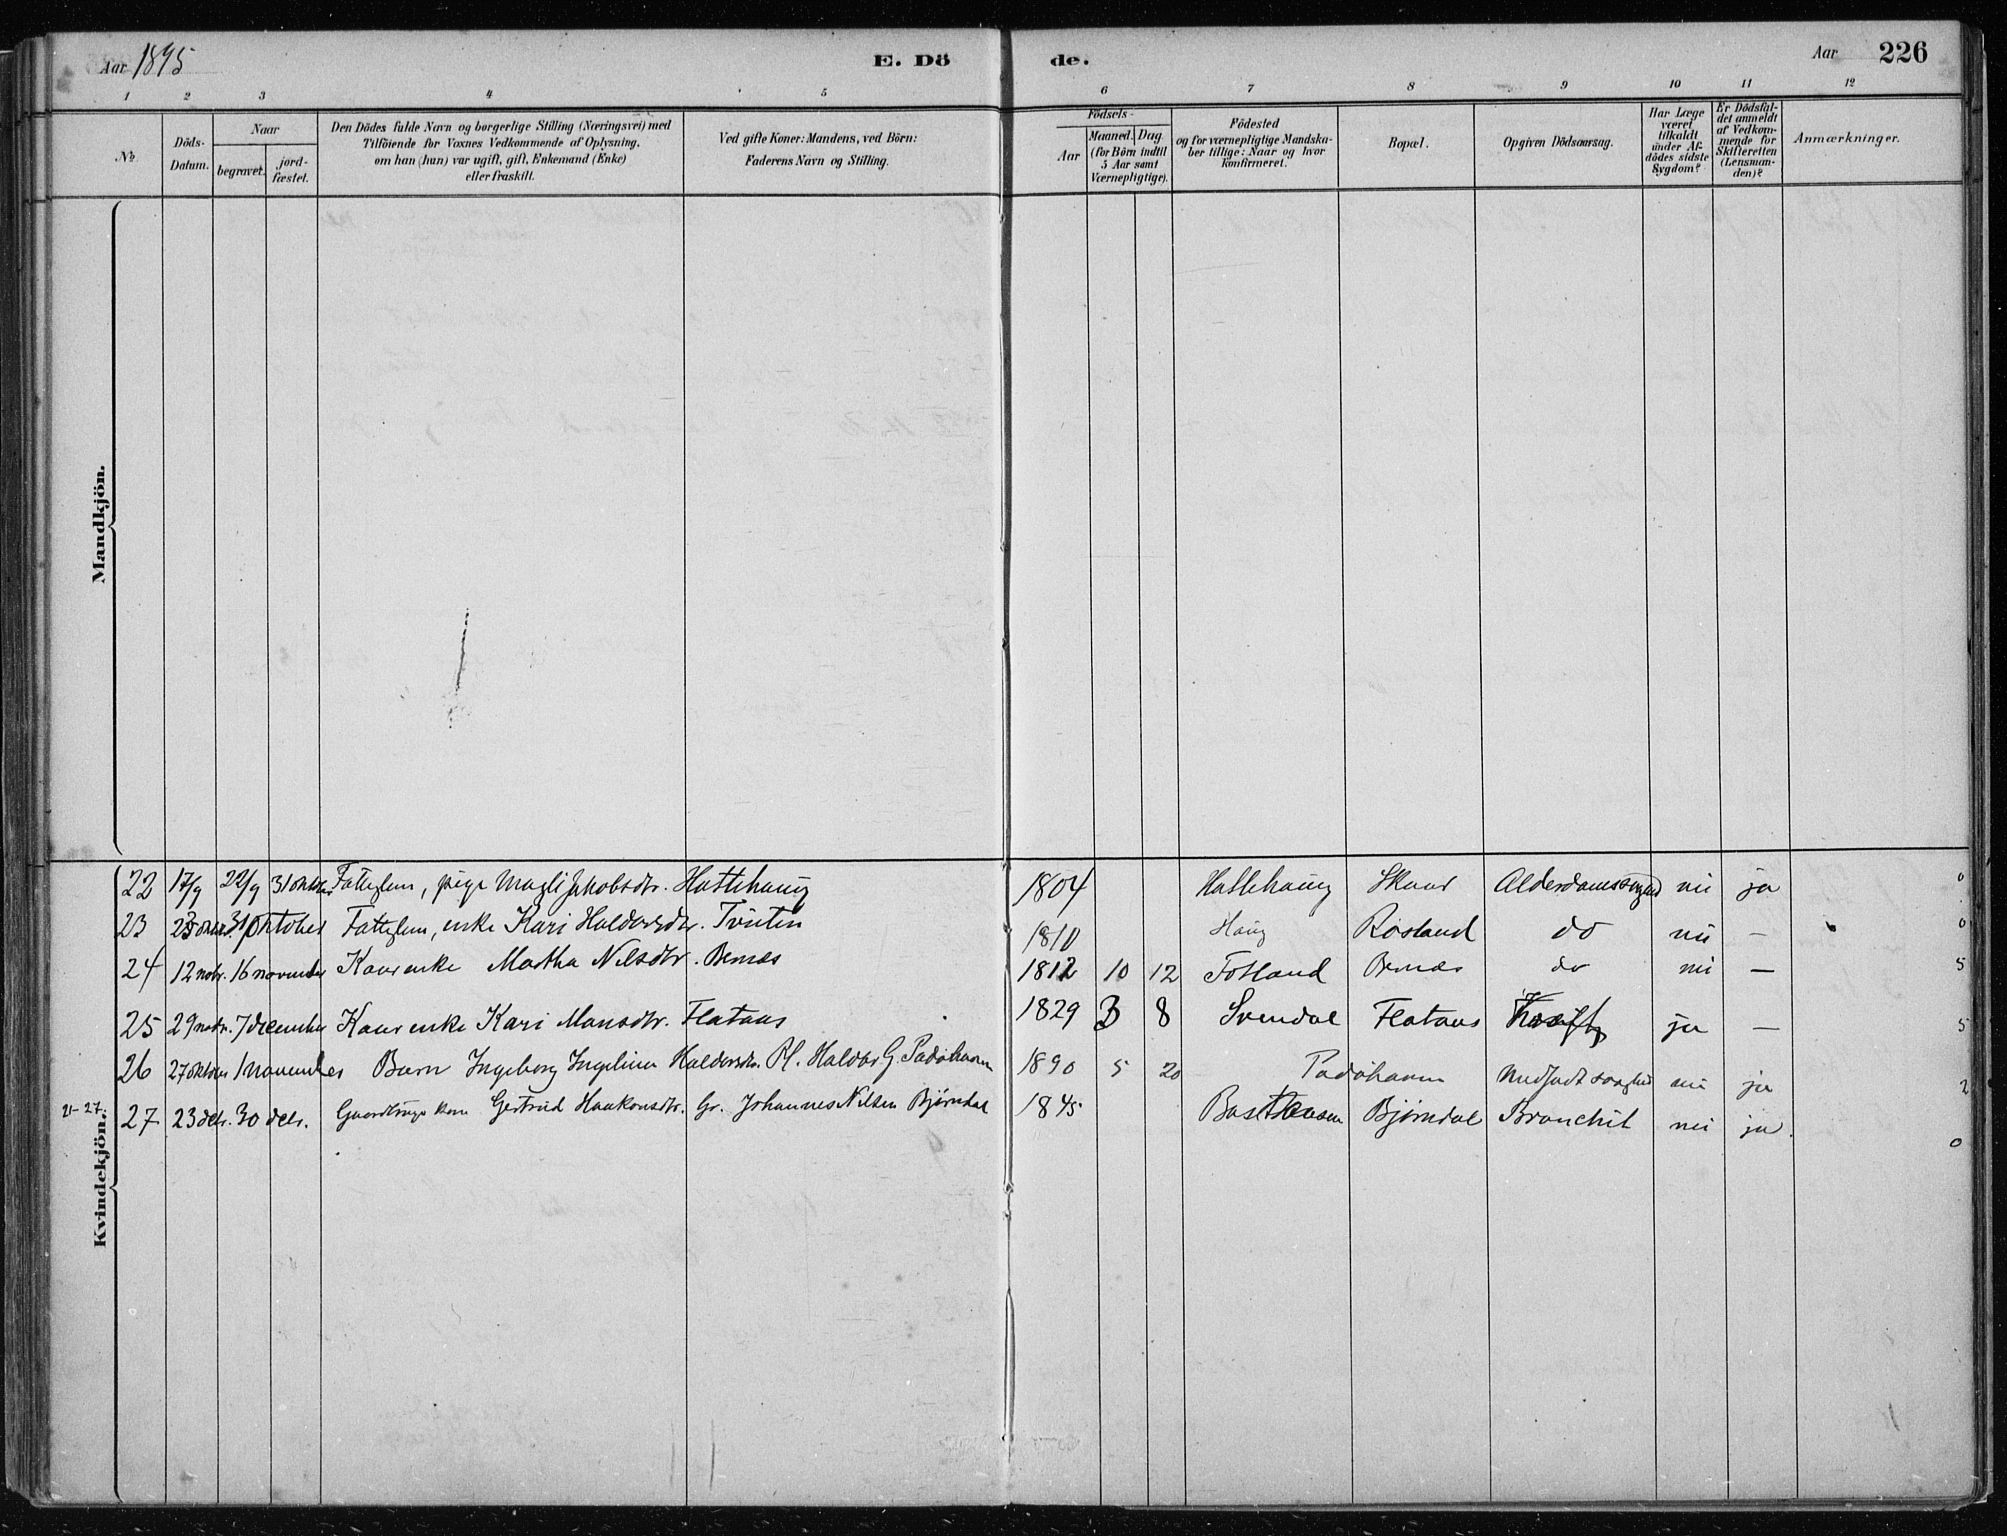 Aar 1895 E. Dö de. Aar 226
1 2 3 4 5 6 7 8 9 10 11 12
No. Döds-Datum. Naar begravet. jord-fæstet. Den Dödes fulde Navn og borgerlige Stilling (Næringsvei) med Tilföiende for Voxnes Vedkommende af Oplysning, om han (hun) var ugift, gift, Enkemand (Enke) eller fraskilt. Ved gifte Koner: Mandens, ved Börn: Faderens Navn og Stilling. Födsels- Aar Maaned. Dag. (for Börn indtil 5 Aar samt Værnepligtige). Födested og for værnepligtige Mandskaber tillige: Naar og hvor konfirmeret. Bopæl. Opgiven Dödsaarsag. Har Læge været tilkaldt under Afdödes sidste Sygdom? Er Dödsfaldet anmeldt af Vedkommende for Skifteretten (Lensmanden)? Anmærkninger.
Mandkjön.
22 17/9 22/9 31 oktober Fattiglem, pige Magli Jakobsdtr. Hattehaug 1804 Hattehaug Skaar nei ja 0
23 31 oktober Fattiglem, enke Kari Haldorsdtr. Tveiten 1810 Haug Røsland do nei — 0
24 12 novbr. 16 november Kaarenke Martha Nilsdtr. Bernæs 1812 10 12 Fotland Bernæs do nei — 5
25 29 novbr. 7 december Kaarenke Kari Monsdtr. Flataas 1829 3 8 Svendal Flataas Kræft ja — 5
26 27 oktober 1 november Barn Ingeborg Ingelina Haldorsdtr. Pl. Haldor G. Padøhavn 1890 5 20 Padøhavn nei ja 2
21-27 27 23 dcbr. 30 dcbr. Gaardbruger kone Gertrud Haakonsdtr. Gr. Johannes Nilsen Bjørndal 1845 Bjørndal Bronchit nei ja. 0
Kvindekjön.